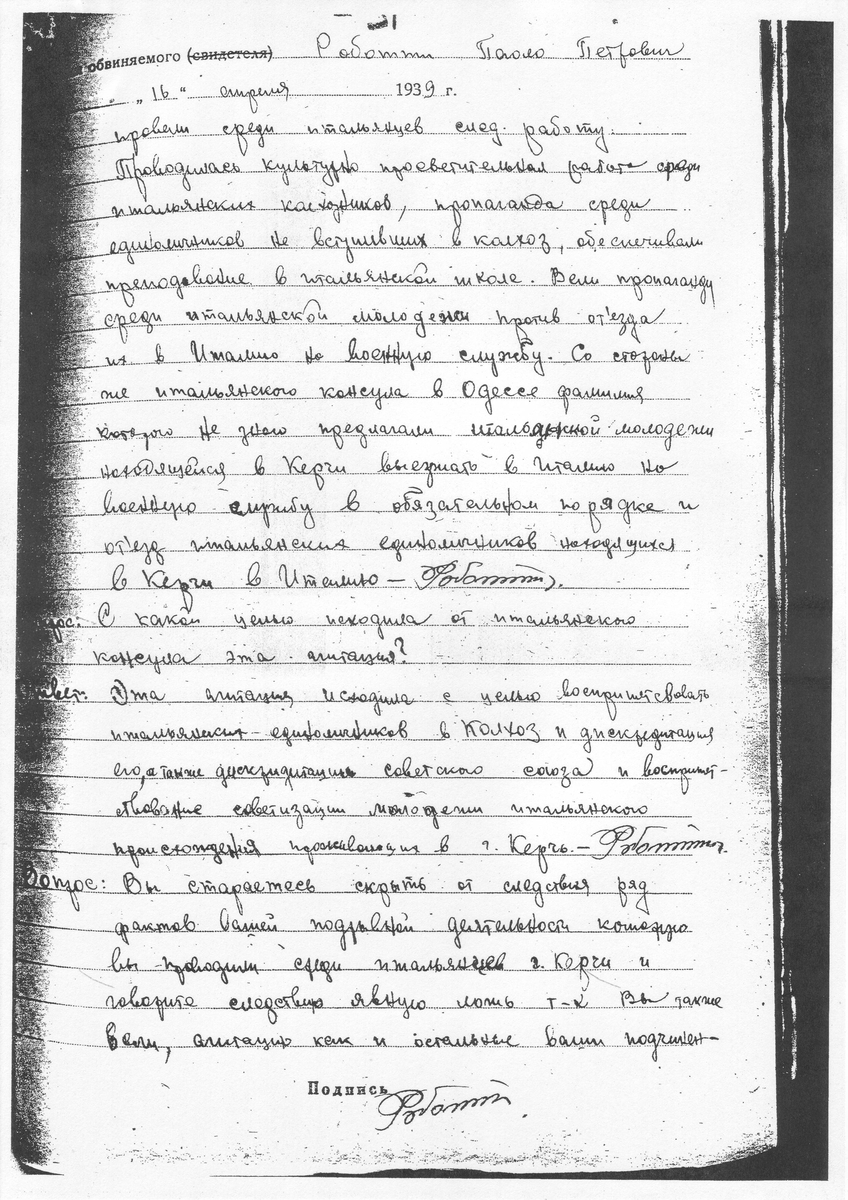 обвиняемого (свидетеля) Роботти Паоло Петрович
„16“ апреля 1939 г.
провели среди итальянцев след. работу.
Проводилась культурно просветительная работа среди
итальянских колхозников, пропаганда среди
единоличников не вступивших в колхоз, обеспечивали
преподование в итальянской школе. Вели пропаганду
среди итальянской молодежи против от'езда
их в Италию на военную службу. Со стороны
же итальянского консула в Одессе фамилия
которого не знаю предлагали итальянской молодежи
находящейся в Керчи выезжать в Италию на
военную службу в обязательном порядке и
от'езд итальянских единоличников находящихся
в Керчи в Италию – Роботти.
С какой целью исходила от итальянского
консула эта агитация?
Ответ: Эта агитация исходила с целью восприпятсвовать
итальянских единоличников в Колхоз и дискредитация
его, а также дискридитации советского союза и восприпят-
ствование советизации молодежи итальянского
происхождения проживающих в г. Керчь. – Роботти.
Вопрос: Вы стараетесь скрыть от следствия ряд
фактов Вашей подрывной деятельности которую
вы проводили среди итальянцев г. Керчи и
говорите следствию явную ложь т-к Вы также
вели, агитацию как и остальные Ваши подчинен-
Подпись Роботти.